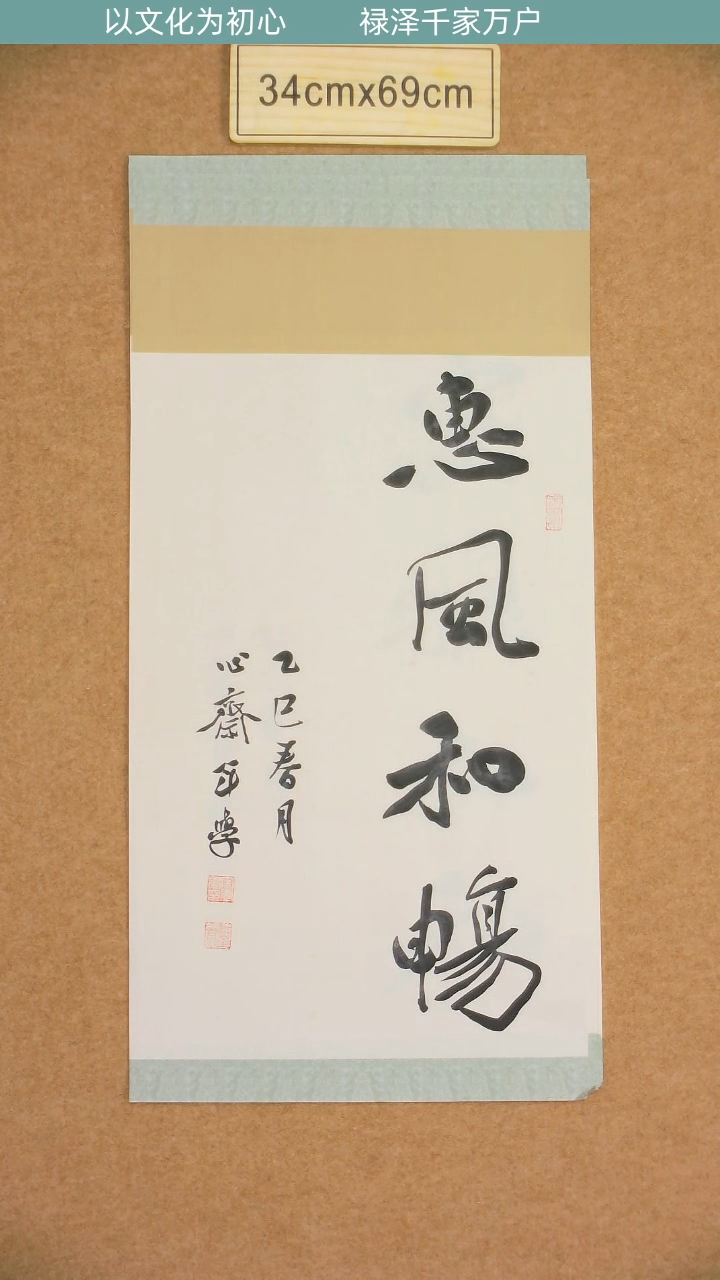 以文化为初心 禄泽千家万户
34cmx69cm
惠風和暢
乙巳春月
心齋年學